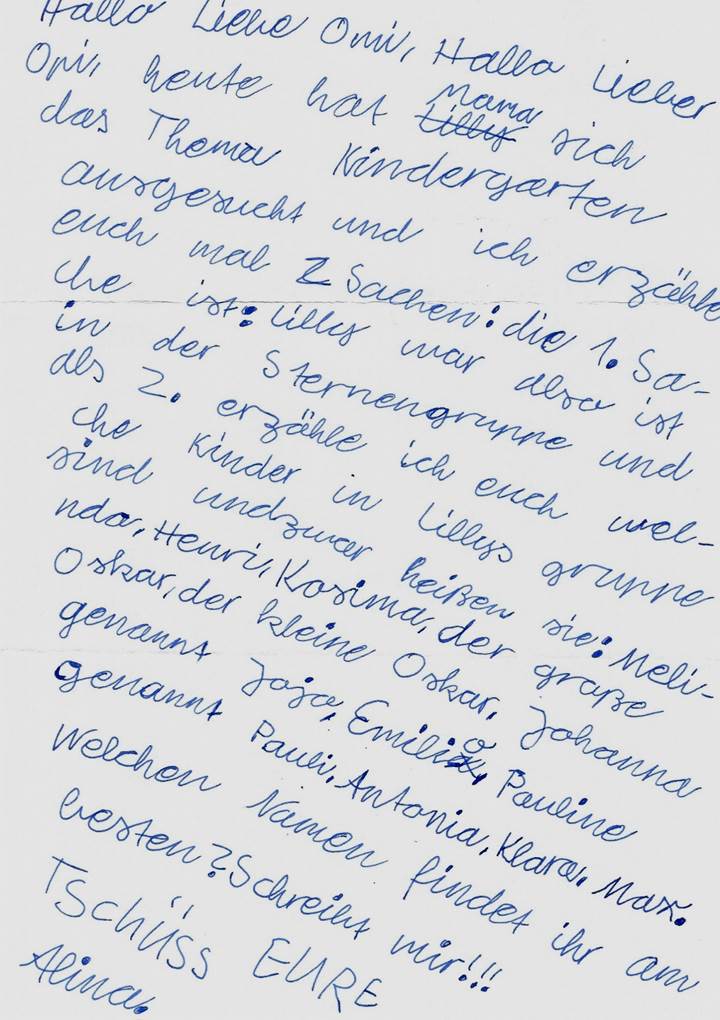 Hallo Liebe Omi, Hallo Lieber
Opi, heute hat Mama sich
das Thema Kindergarten
ausgesucht und ich erzähle
euch mal 2 Sachen: die 1. Sa-
che ist: Lillys war also ist
in der Sternengruppe und
als 2. erzähle ich euch wel-
che Kinder in Lillys gruppe
sind undzwar heißen sie: Meli-
nda, Henri, Kosima, der große
Oskar, der kleine Oskar, Johanna
genannt Jojo, Emilia, Pauline
genannt Pauli, Antonia, Klara, Max.
Welchen Namen findet ihr am
besten? Schreibt mir!!!
TSCHÜSS EURE
Alina.